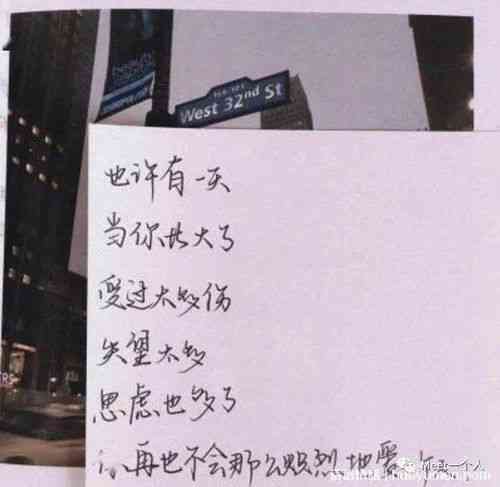 beauty
West 32nd St
也许有一天
当你长大了
受过太多伤
失望太多
思虑也多了
你再也不会那么炽烈地爱
Meet一个人